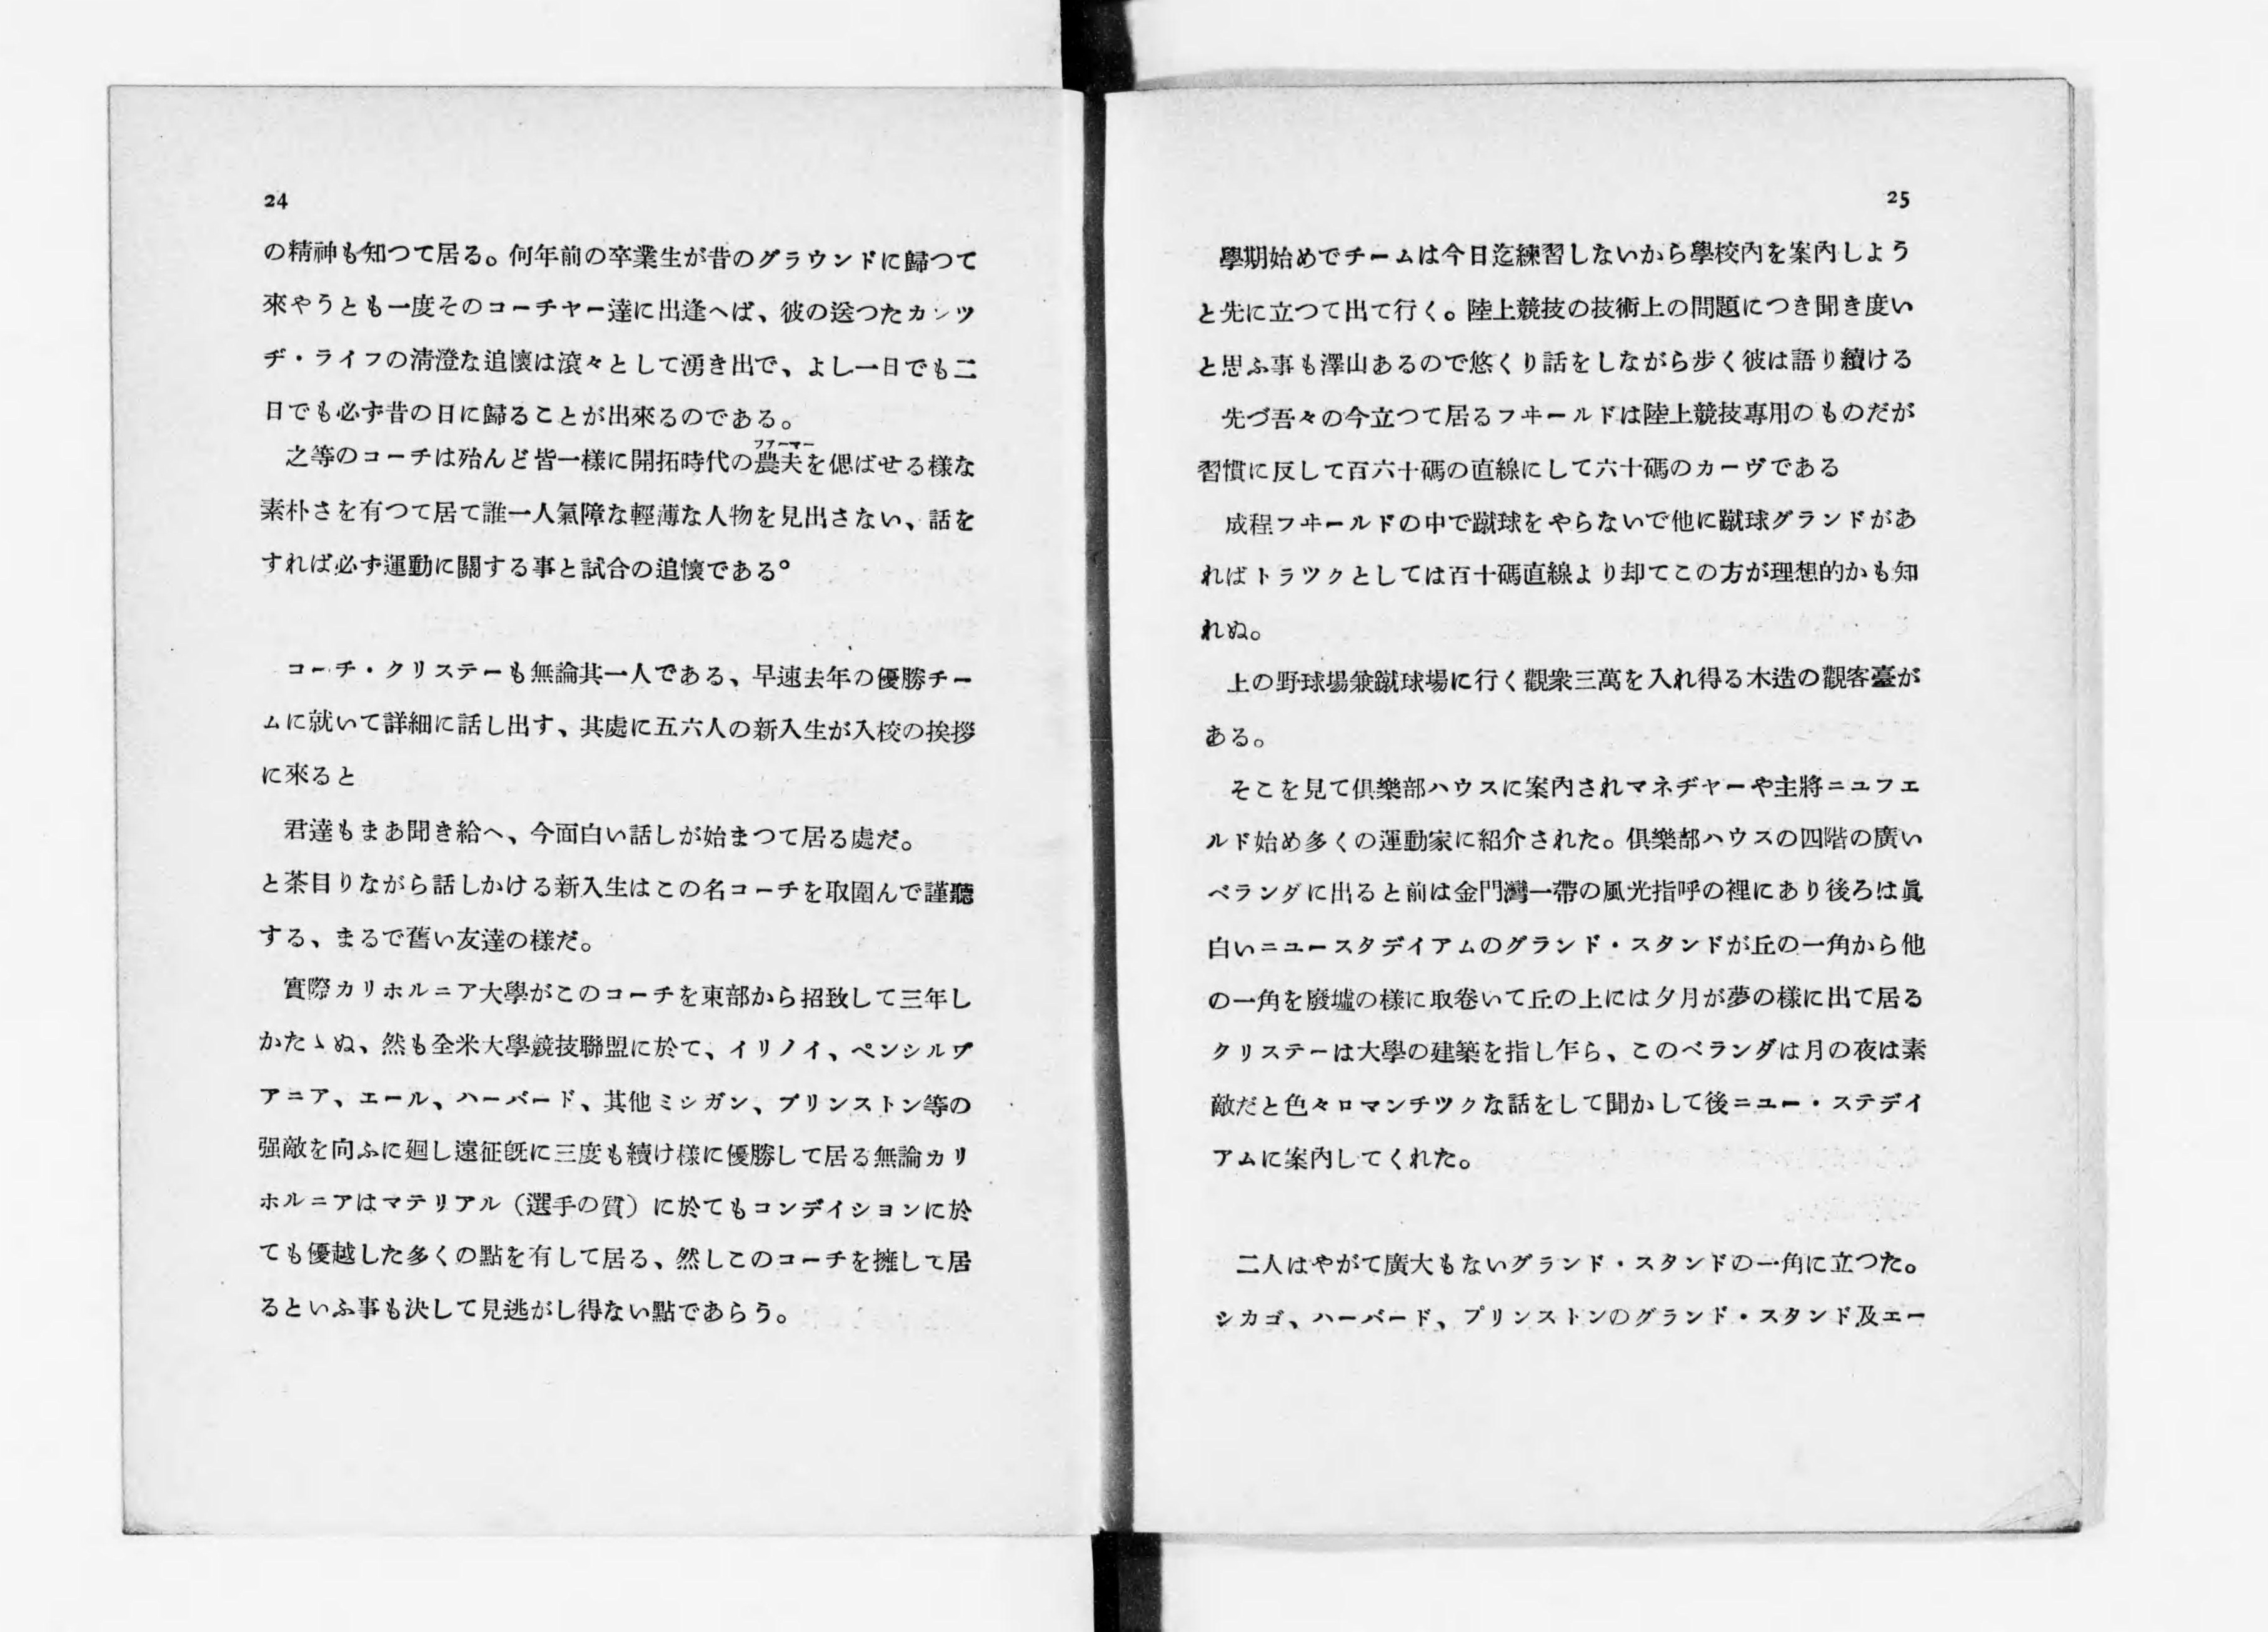 24
の精神も知つて居る。何年前の卒業生が昔のグラウンドに歸つて
來やうとも一度そのコーチヤー達に出逢へば、彼の送つたカレツ
ヂ・ライフの清澄な追懷は滾々として湧き出で、よし一日でも二
日でも必ず昔の日に歸ることが出來るのである。
之等のコーチは殆んど皆一樣に開拓時代の農夫を偲ばせる樣な
フアーマー
素朴さを有つて居て誰一人氣障な輕薄な人物を見出さない、話を
すれば必ず運動に關する事と試合の追懷である。
コーチ・クリステーも無論其一人である、早速去年の優勝チー
ムに就いて詳細に話し出す、其處に五六人の新入生が入校の挨拶
に來ると
君達もまあ聞き給へ、今面白い話しが始まつて居る處だ。
と茶目りながら話しかける新入生はこの名コーチを取圍んで謹聽
する、まるで舊い友達の樣だ。
實際カリホルニア大學がこのコーチを東部から招致して三年し
かたゝぬ、然も全米大學競技聯盟に於て、イリノイ、ペンシルヴ
アニア、エール、ハーバード、其他ミシガン、プリンストン等の
强敵を向ふに廻し遠征旣に三度も續け樣に優勝して居る無論カリ
ホルニアはマテリアル（選手の質）に於てもコンデイシヨンに於
ても優越した多くの點を有して居る、然しこのコーチを擁して居
るといふ事も決して見逃がし得ない點であらう。
25
學期始めでチームは今日迄練習しないから學校內を案內しよう
と先に立つて出て行く。陸上競技の技術上の問題につき聞き度い
と思ふ事も澤山あるので悠くり話をしながら步く彼は語り續ける
先づ吾々の今立つて居るフヰールドは陸上競技專用のものだが
習慣に反して百六十碼の直線にして六十碼のカーヴである
成程フヰールドの中で蹴球をやらないで他に蹴球グランドがあ
ればトラツクとしては百十碼直線より却てこの方が理想的かも知
れぬ。
上の野球場兼蹴球場に行く觀衆三萬を入れ得る木造の觀客臺が
ある。
そこを見て俱樂部ハウスに案內されマネヂヤーや主將ニユフエ
ルド始め多くの運動家に紹介された。俱樂部ハウスの四階の廣い
ベランダに出ると前は金門灣一帶の風光指呼の裡にあり後ろは眞
白いニユースタデイアムのグランド・スタンドが丘の一角から他
の一角を廢墟の樣に取卷いて丘の上には夕月が夢の樣に出て居る
クリステーは大學の建築を指し乍ら、このベランダは月の夜は素
敵だと色々ロマンチツクな話をして聞かして後ニユー・ステデイ
アムに案內してくれた。
二人はやがて廣大もないグランド・スタンドの一角に立つた。
シカゴ、ハーバード、プリンストンのグランド・スタンド及エー